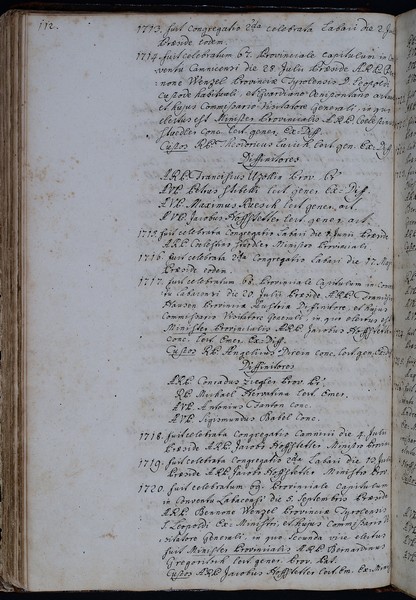 112.
1713. fuit Congregatio 2da celebrata Labaci die 2
Præside eodem.
1714. fuit celebratum 67. Provinciale capitulum in
ventu Camnicensi die 28 Julii Præside A.R.P.
none Wenzel Provinciæ Tyrolensis S. Leopoldi
Custode habituali, et Guardiano Oenipontano
et hujus Commissario Visitatore Generali, in quo
electus est Minister Provincialis A.R.P. Coelestinus
Conc. lect. gener. Ex: Diff.
Custos R.P. Theodoricus lect. gen. Ex: Diff
Diffinitores
A.R.P. Franciscus Prov. P.
A.V.P. Petrus lect. gener. Ex: Diff.
A.V.P. Maximus Raesch lect. gener. act.
A.V.P. Jacobus Hoffstetter lect. gener. act.
1715. fuit celebrata Congregatio Labaci die Junii Præside
A.R.P. Coelestino Minister Provinciali
1716. fuit celebrata 2da Congregatio Labaci die 17 May
Præside eodem.
1717. fuit celebratum 68. Provinciale Capitulum in Conv
tu Labacensi die 20 Julii Præside A.R.P.
Hansen Provinciæ Austriæ Diffinitore, et hujus
Commissario Visitatore Generali, in quo electus est
Minister Provincialis A.R.P. Jacobus Hoffstetter
conc. lect. Emer. Ex: Diff.
Custos R.P. Angelicus conc. lect. gen. Ex: D
Diffinitores
A.R.P. Conradus Ziegler Prov. P.
R.P. Michael lect. Emer.
A.V.P. Antonius conc.
A.V.P. Sigismundus conc.
1718. fuit celebrata Congregatio Camnicii die 4. Julii
Præside A.R.P. Jacobo Hoffstetter Ministro Provin
1719. fuit celebrata Congregatio 2da Labaci die 10 Julii
Præside A.R.P. Jacobo Hoffstetter Ministro Pro
1720. fuit celebratum 69. Provinciale Capitulum
in Conventu Labacensi die 5. Septembris Præside
A.R.P. Bennone Wenzel Provinciæ Tyrolensis
S. Leopoldi Ex: Ministri, et hujus Commissario
sitatore Generali, in quo secunda vice electus
fuit Minister Provincialis A.R.P. Bernardinus
lect. gener. Prov. Pat.
Custos A.R.P. Jacobus Hoffstetter lect. Em. Ex: Min